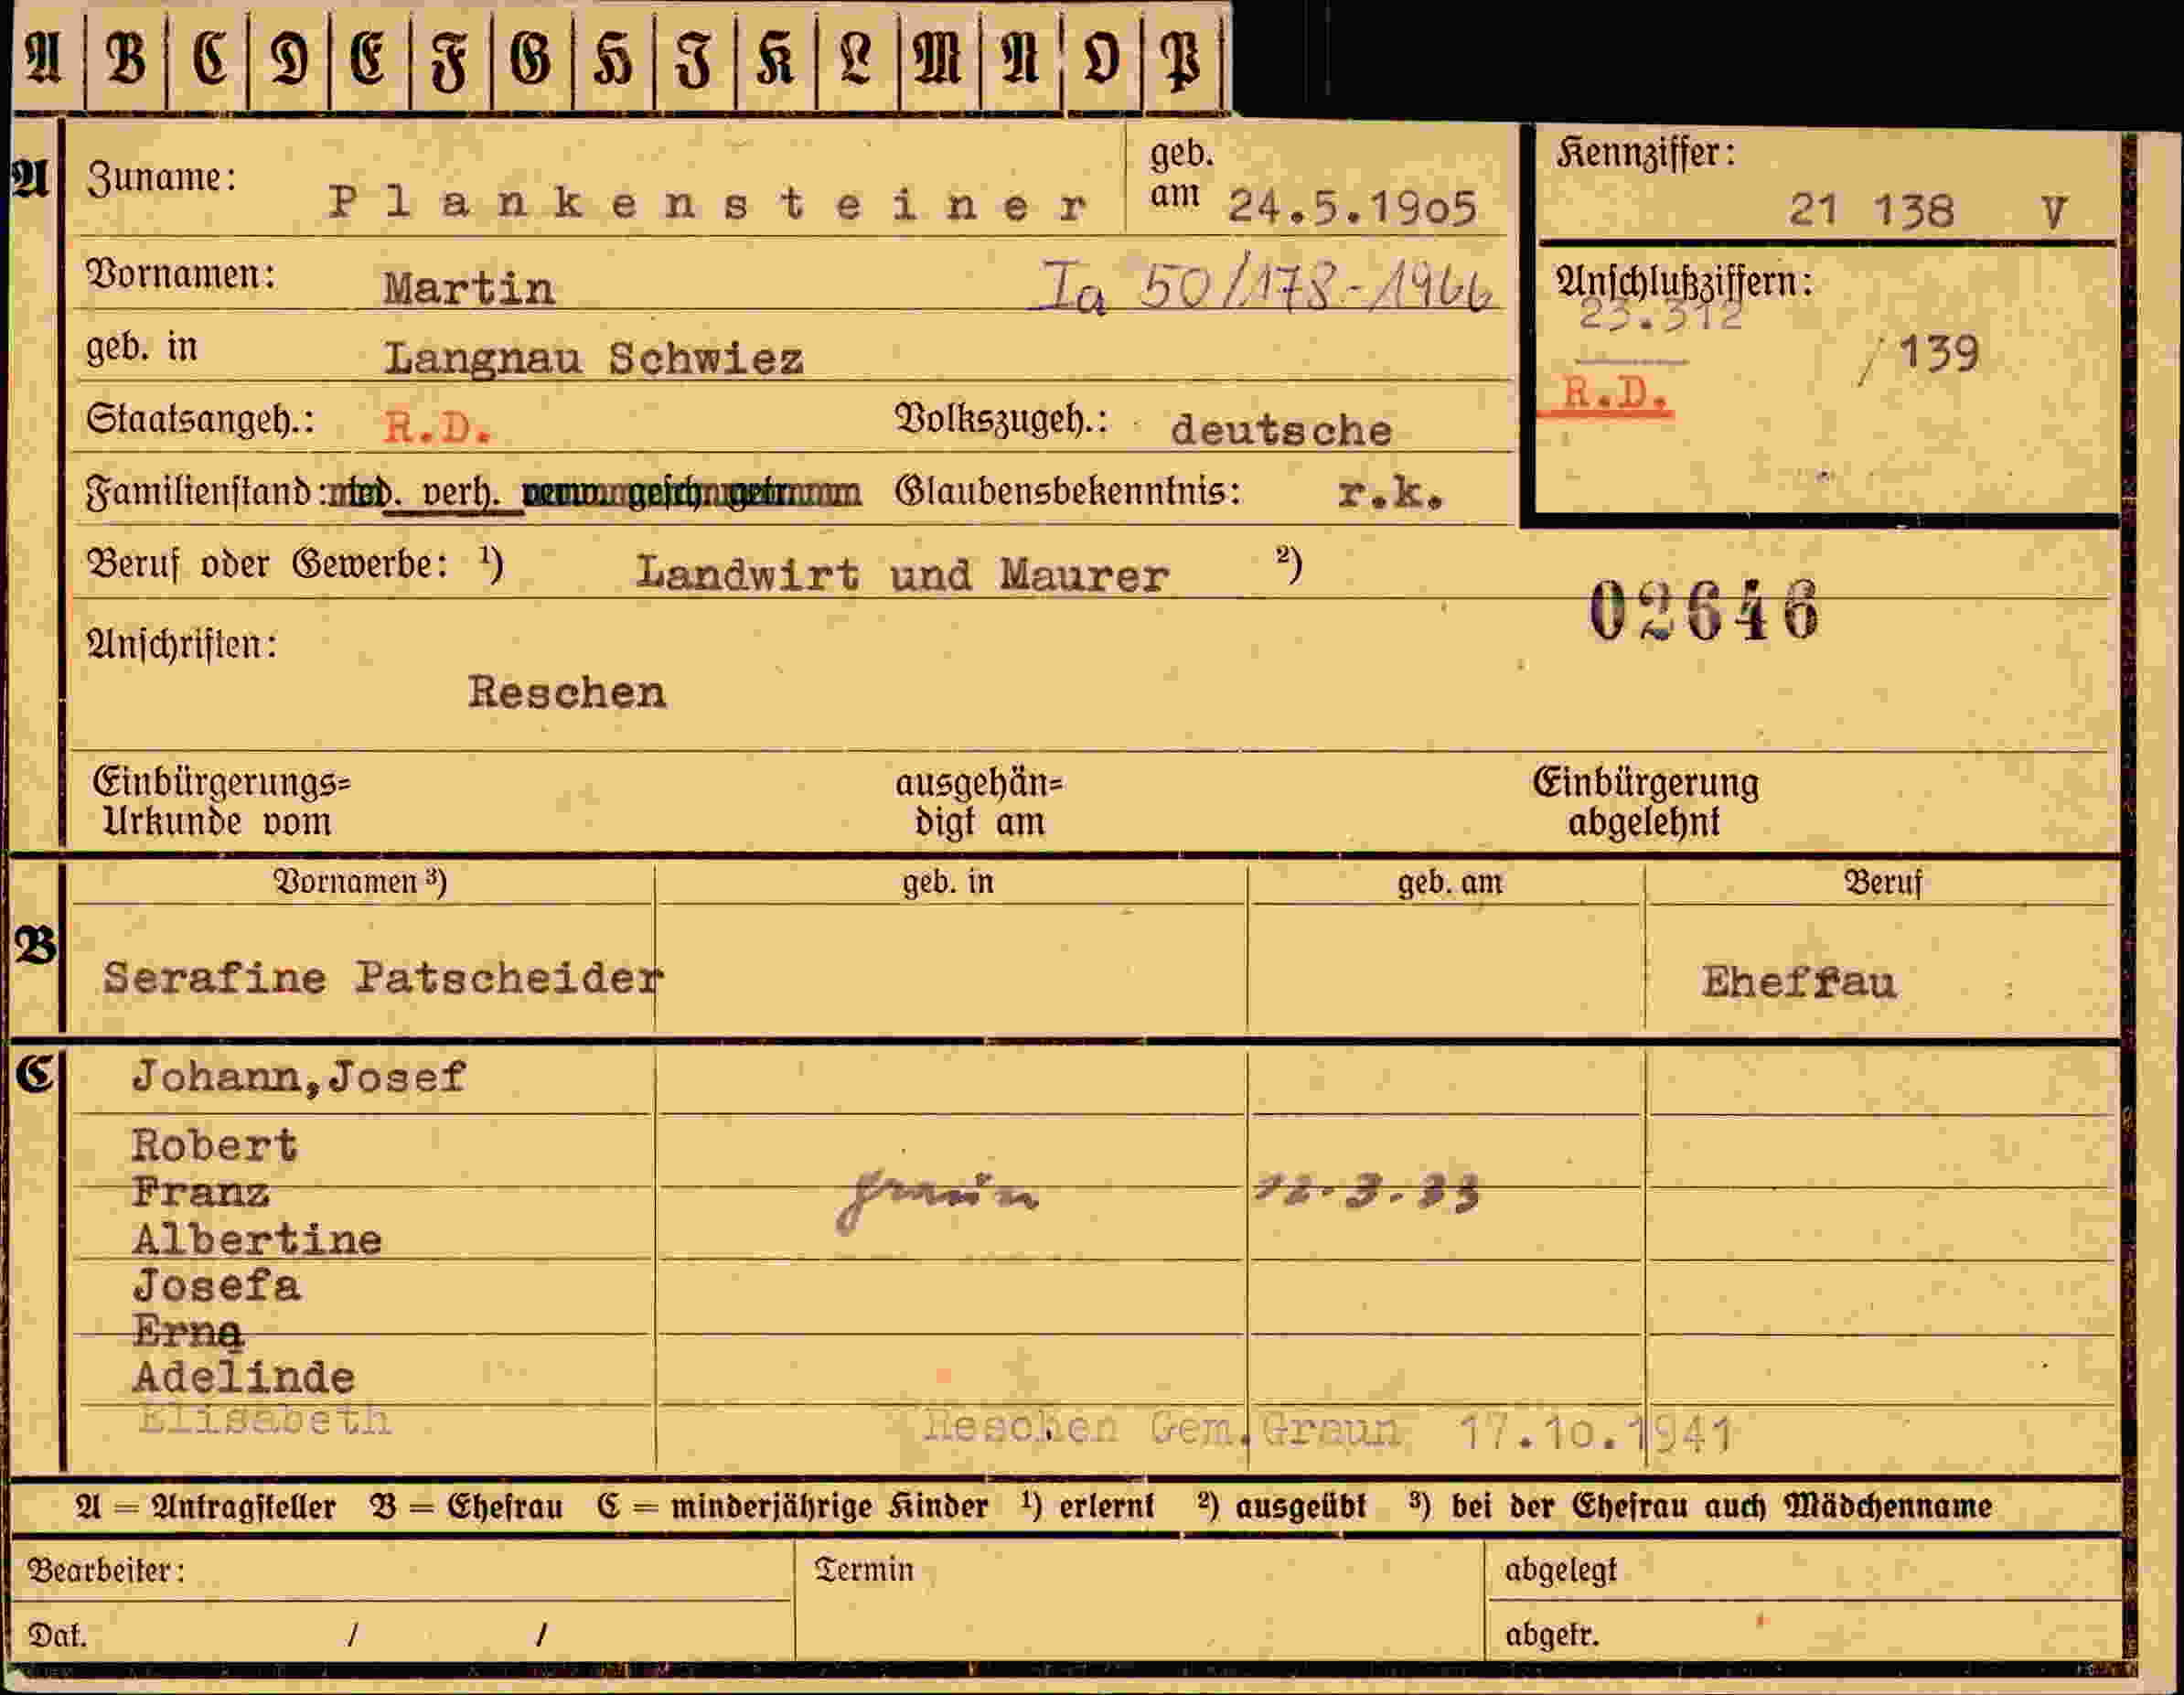 A B C D E F G H I K L M N O P
A Zuname: Plankensteiner geb. am 24.5.19o5
Kennziffer: 21 138 V
Vornamen: Martin Ia 50/178-1966
Anschlußziffern:
23.312
/139
R.D.
geb. in Langnau Schwiez
Staatsangeh.: R.D. Volkszugeh.: deutsche
Familienstand: verh. Glaubensbekenntnis: r.k.
Beruf oder Gewerbe: ¹) Landwirt und Maurer ²)
02646
Anschriften:
Reschen
Einbürgerungs= ausgehän= Einbürgerung
Urkunde vom digt am abgelehnt
Vornamen ³) geb. in geb. am Beruf
B
Serafine Patscheider Eheffau
C Johann,Josef
Robert
Franz Graun 12.3.33
Albertine
Josefa
Erna
Adelinde
Elisabeth Reschen Gem.Graun 17.10.1941
A = Antragsteller B = Ehefrau C = minderjährige Kinder ¹) erlernt ²) ausgeübt ³) bei der Ehefrau auch Mädchenname
Bearbeiter: Termin abgelegt
Dat. / / abgetr.